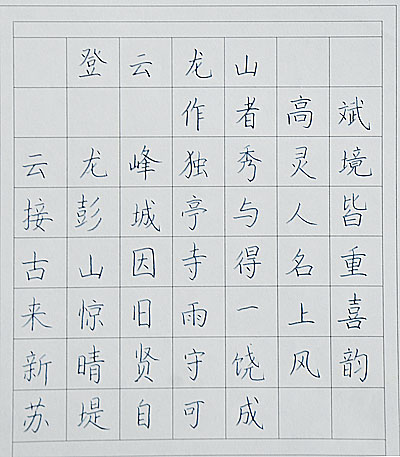 登云龙山
作者高斌
云龙峰独秀灵境
接彭城亭与人皆
古山因寺得名重
来惊旧雨一上喜
新晴贤守饶风韵
苏堤自可成